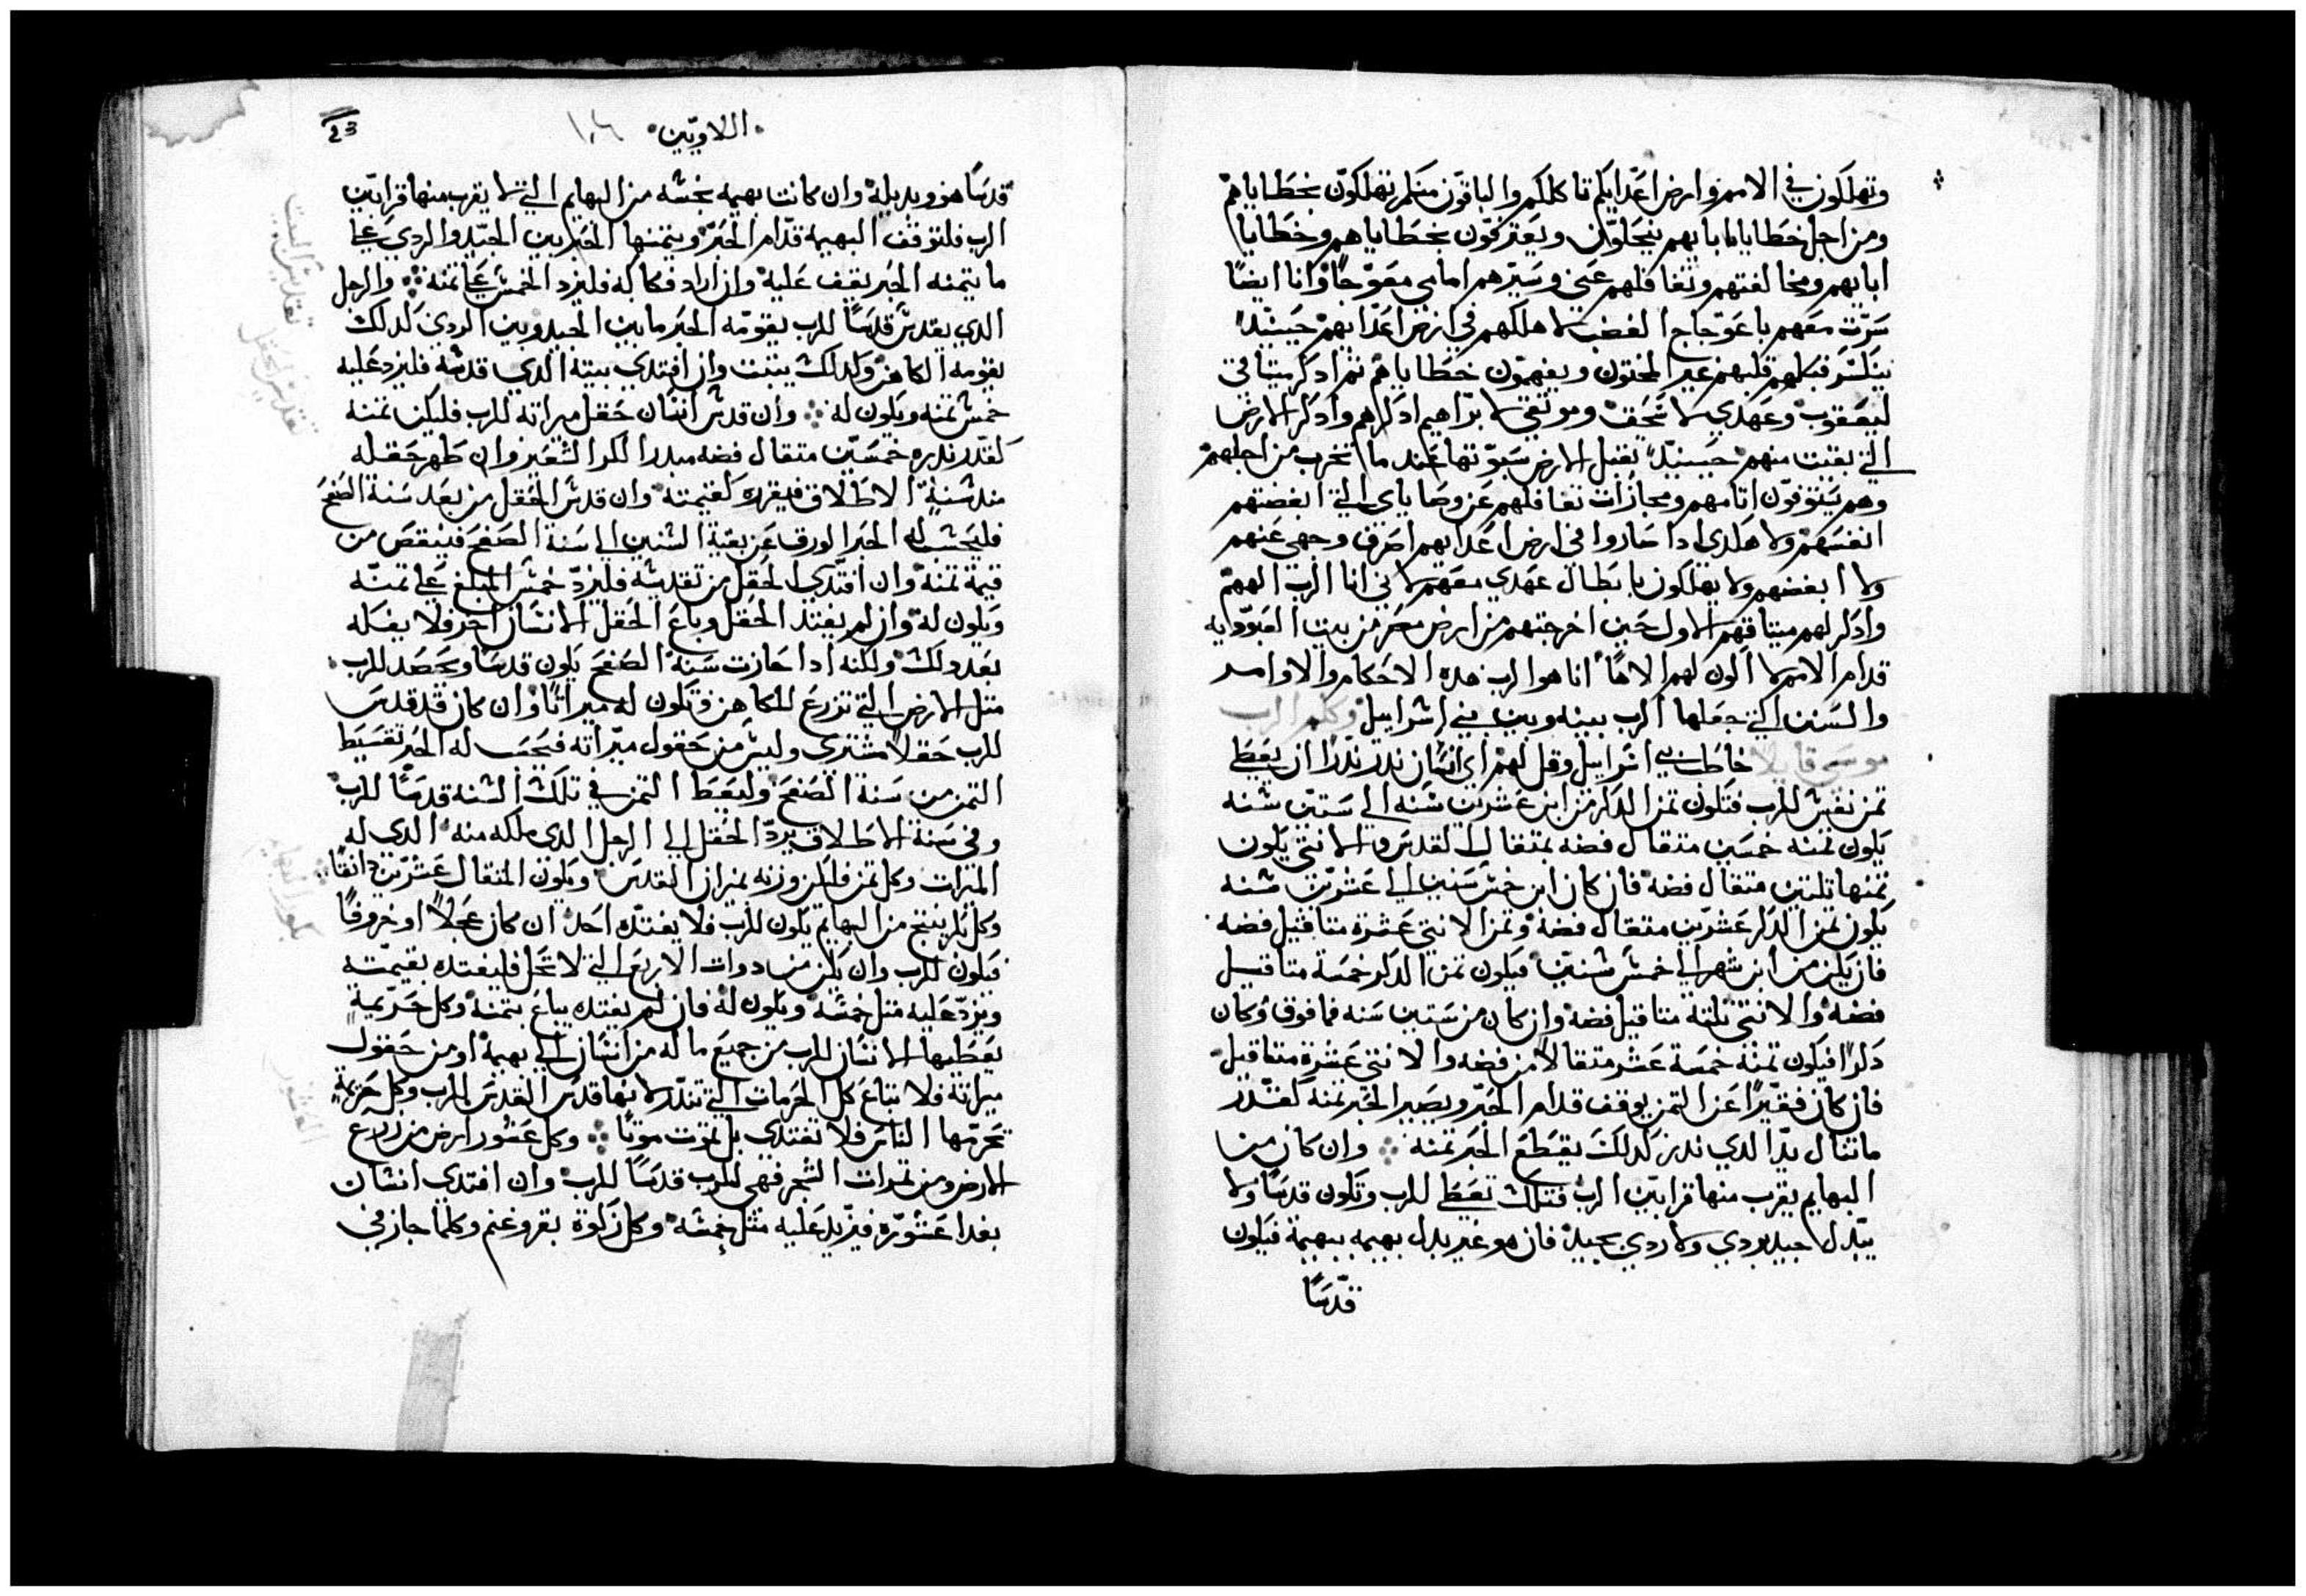 وتهلكون في الامم وارض اعدايكم تاكلكم والباقون منكم تهلكون بخطاياهم
ومن اجل خطايا ابايهم ينحلون ويعترفون بخطاياهم وخطايا
ابايهم ومخالفتهم وتغافلهم عني وسيرهم امامي معوجًا وانا ايضًا
سرت معهم باعوجاج الغضب لاهلكهم في ارض اعدايهم حينيدٍ
ينكسر قبلهم قلبهم غير المختون ويفهمون خطاياهم ثم ادكر ميتاقي
ليعقوب وعهدي لاسحق وموتقي لابراهيم ادكرهم وادكر الارض
التي بقيت منهم حينيدٍ تقبل الارض سبوتها عند ما تخرب من اجلهم
وهم يستوفون اتامهم ومجازات تغافلهم عن وصاياي التي ابغضتهم
انفسهم ولا هكدى ادا صاروا في ارض اعدايهم اصرف وجهي عنهم
ولا ابغضهم ولا يهلكون بابطال عهدي معهم لاني انا الرب الههم
وادكر لهم ميتاقهم الاول حين اخرجتهم من ارض مصر من بيت العبودايه
قدام الامم لاكون لهم الاهًا انا هو الرب هده الاحكام والاوامر
والسنن التي جعلها الرب بينه وبين بني اسراييل وكلم الرب
موسى قايلا خاطب بني اسراييل وقل لهم اي انسان ندر ندرا ان يعطي
تمن نفس للرب فتكون تمن الدكر من ابن عشرين سنه الى ستين سنه
يكون تمنه خمسين متقال فضه بمتقال القدس والانتى يكون
تمنها تلتين متقال فضه فان كان ابن خمس سنين الى عشرين سنه
يكون تمن الدكر عشرين متقال فضه وتمن الانتى عشرة متاقيل فضه
فان يكن من ابن شهر الى خمس سنين فيكون تمن الدكر خمسة متاقيل
فضه والانتى تلتة متاقيل فضه وان كان من ستين سنه فما فوق وكان
دكرا فيكون تمنه خمسة عشر متقالاً من فضه والانتى عشرة متاقيل
فان كان فقيرًا عن التمن يوقف قدام الحبر ويصير الحبر تمنه كقدر
ما تنال يد الدي ندر كدلك يقطع الحبر تمنه وان كان من
البهايم يقرب منها قرابين الرب فتلك تعطى للرب وتكون قدسًا ولا
يبدل جيد بردي ولا ردي بجيد فان هو غير بدل بهيمه ببهيمة فيكون
قدسًا
اللاويين ١٠٦
23
قدسًا هو وبديله وان كانت بهيمه نجسه من البهايم التي لا يقرب منها قرابين
الرب فلتوقف البهيمه قدام الحبر ويتمنها الحبر بين الجيد والردي على
ما يتمنه الحبر يقف عليه وان اراد فكاكه فليزد الخمس على تمنه والرجل
الدي يقدس قدسًا للرب يقومه الحبر ما بين الجيد وبين الردي كدلك
يقومه الكاهن وكدلك يتبت وان افتدى بيته الدي قدسه فليزد عليه
خمس تمنه ويكون له وان قدس انسان حقل ميراته للرب فليكن تمنه
كقدر ندره خمسين متقال فضه الشعير وان طهر حقله
مند سنة الاطلاق فيقره كقيمته وان قدس الحقل من بعد سنة الصفح
فليحسب له الحبر الورق عن بقية السنين الى سنة الصفح فينقص من
قيمة تمنه وان افتدى الحقل من تقديسه فليزد خمس المبلغ على تمنه
ويكون له وان لم يفتد الحقل وباع الحقل لانسان اخر فلا يفكه
بعد دلك ولكنه ادا جازت سنة الصفح يكون قدسًا ويحصد للرب
متل الارض التي تزرع للكاهن وتكون له ميراتًا وان كان قد قدس
للرب حقلاً مشترى وليس من حقول ميراته فيحسب له الحبر تقسيط
التمن من سنة الصفح وليعط التمن في تلك السنه قدسًا للرب
وفي سنة الاطلاق يرد الحقل الى الرجل الدي ملكه منه الدي له
الميرات وكل تمن فليكن وزنه بميزان القدس ويكون المتقال عشرين دانقًا
وكل بكر ينتج من البهايم يكون للرب فلا يفتده احد ان كان عجلاً او خروفًا
فيكون للرب وان يكن من دوات الاربع التي لا تحل فليفتده بقيمته
ويزد عليه متل خمسه ويكون له فان لم يفتده يباع بتمنه وكل حريمة
يعطيها الانسان للرب من جميع ما له من انسان الى بهيمة او من حقول
ميراته فلا تباع كل الحرمات التي تندر لانها قدس القدس للرب وكل حريمة
تحرمها الناس فلا تفتدى بل تموت موتًا وكل عشور ارض من زرع
الارض ومن تمرات الشجر فهي للرب قدسًا للرب وان افتدى انسان
بفدا عشوره فيزيد عليه متل خمسه وكل زكوة بقر وغنم وكلما جاز في
تقديس البيت
تقديس الحقل
بكور البهايم
العشور